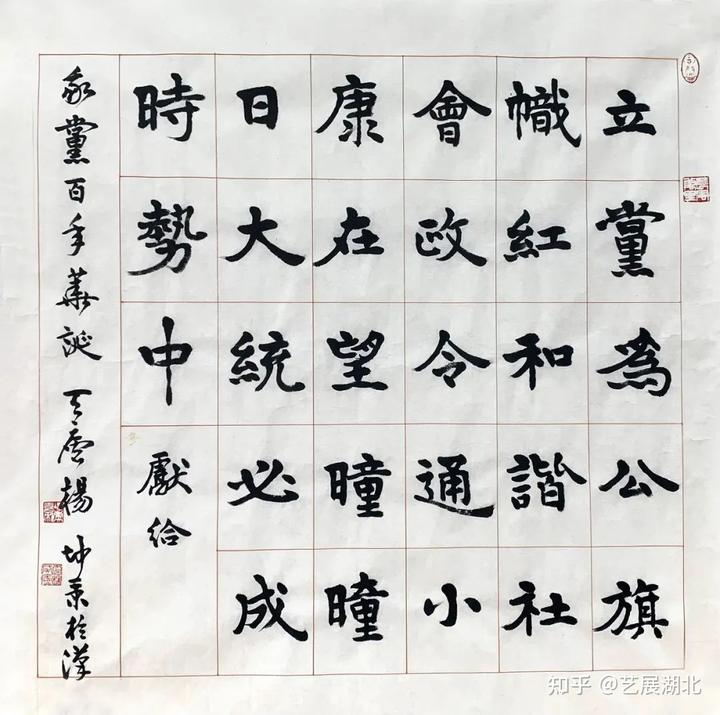 立黨為公旗
幟紅和諧社
會政令通小
康在望曈曈
日大統必成
時勢中
獻給
我黨百年華誕 天雲楊坤業於漢
知乎 @艺展湖北